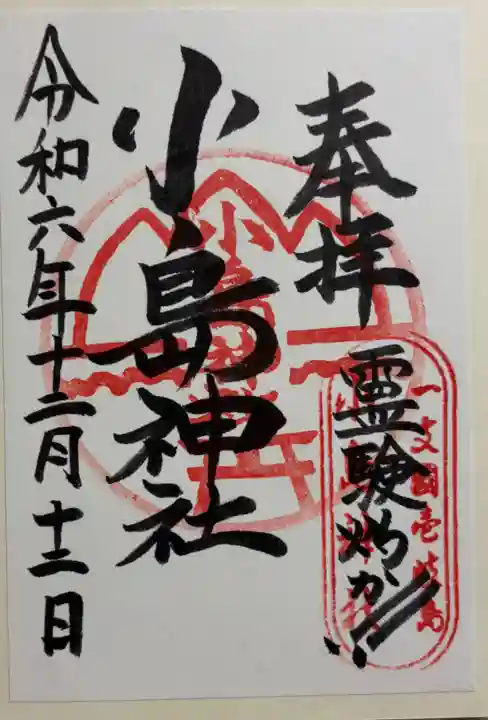 奉拝
霊験灼か!!
一支國壱岐島
小島神社
令和六年十二月十二日